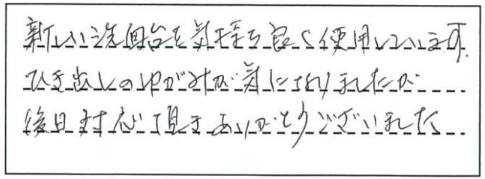 新しい洗面台を気持ち良く使用しています。
ひき出しのゆがみが気になりましたが
後日対応頂きありがとうございました